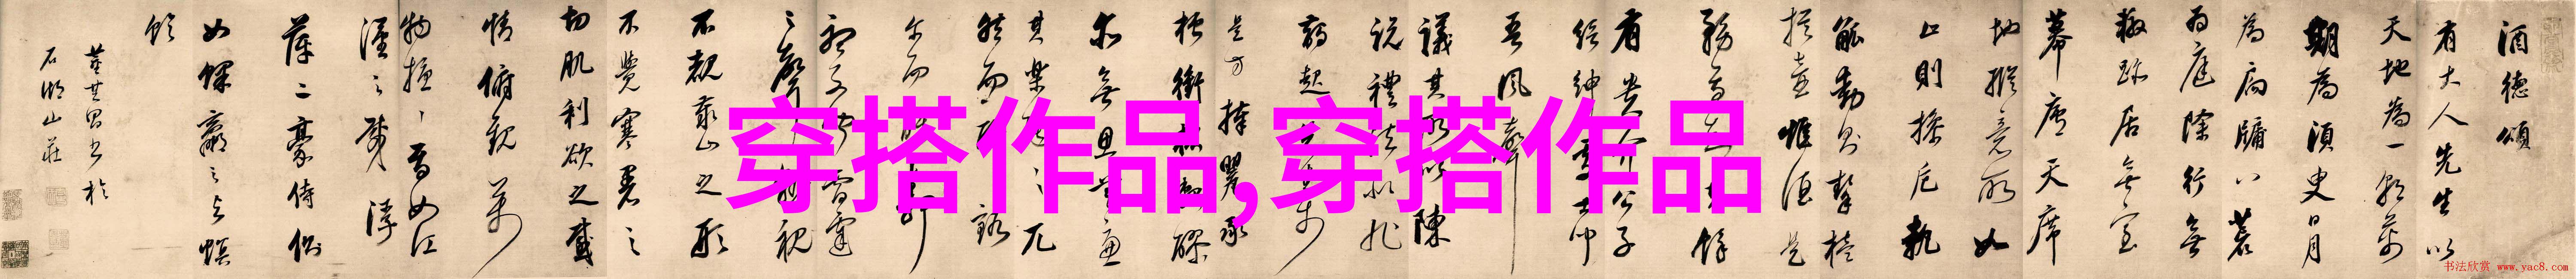 酒德頌
有大人先生以
天地為一朝萬
期為須臾日月
為扃牖八荒
為庭除行無
轍跡居無室
幕廬天席
地縱意所如
止則操卮執
觚動則挈榼
提壺惟酒是
務焉知其餘
有貴介公子
縉紳處士聞
吾風聲
議其所以陳
說禮法是非
起
是方捧罌承
槽銜醪
無思無慮
其樂兀
然而豁
尔而
雷霆
之聲視
不覩泰山之形
不覺寒暑之
切肌利欲之感
情俯觀萬
物擾擾焉如江
漢之載浮
萍二豪侍側
如蜾蠃之與螟
蛉
董其昌書於
石湖山莊
穿搭作品,穿搭作品
书法欣赏 www.yac8.com